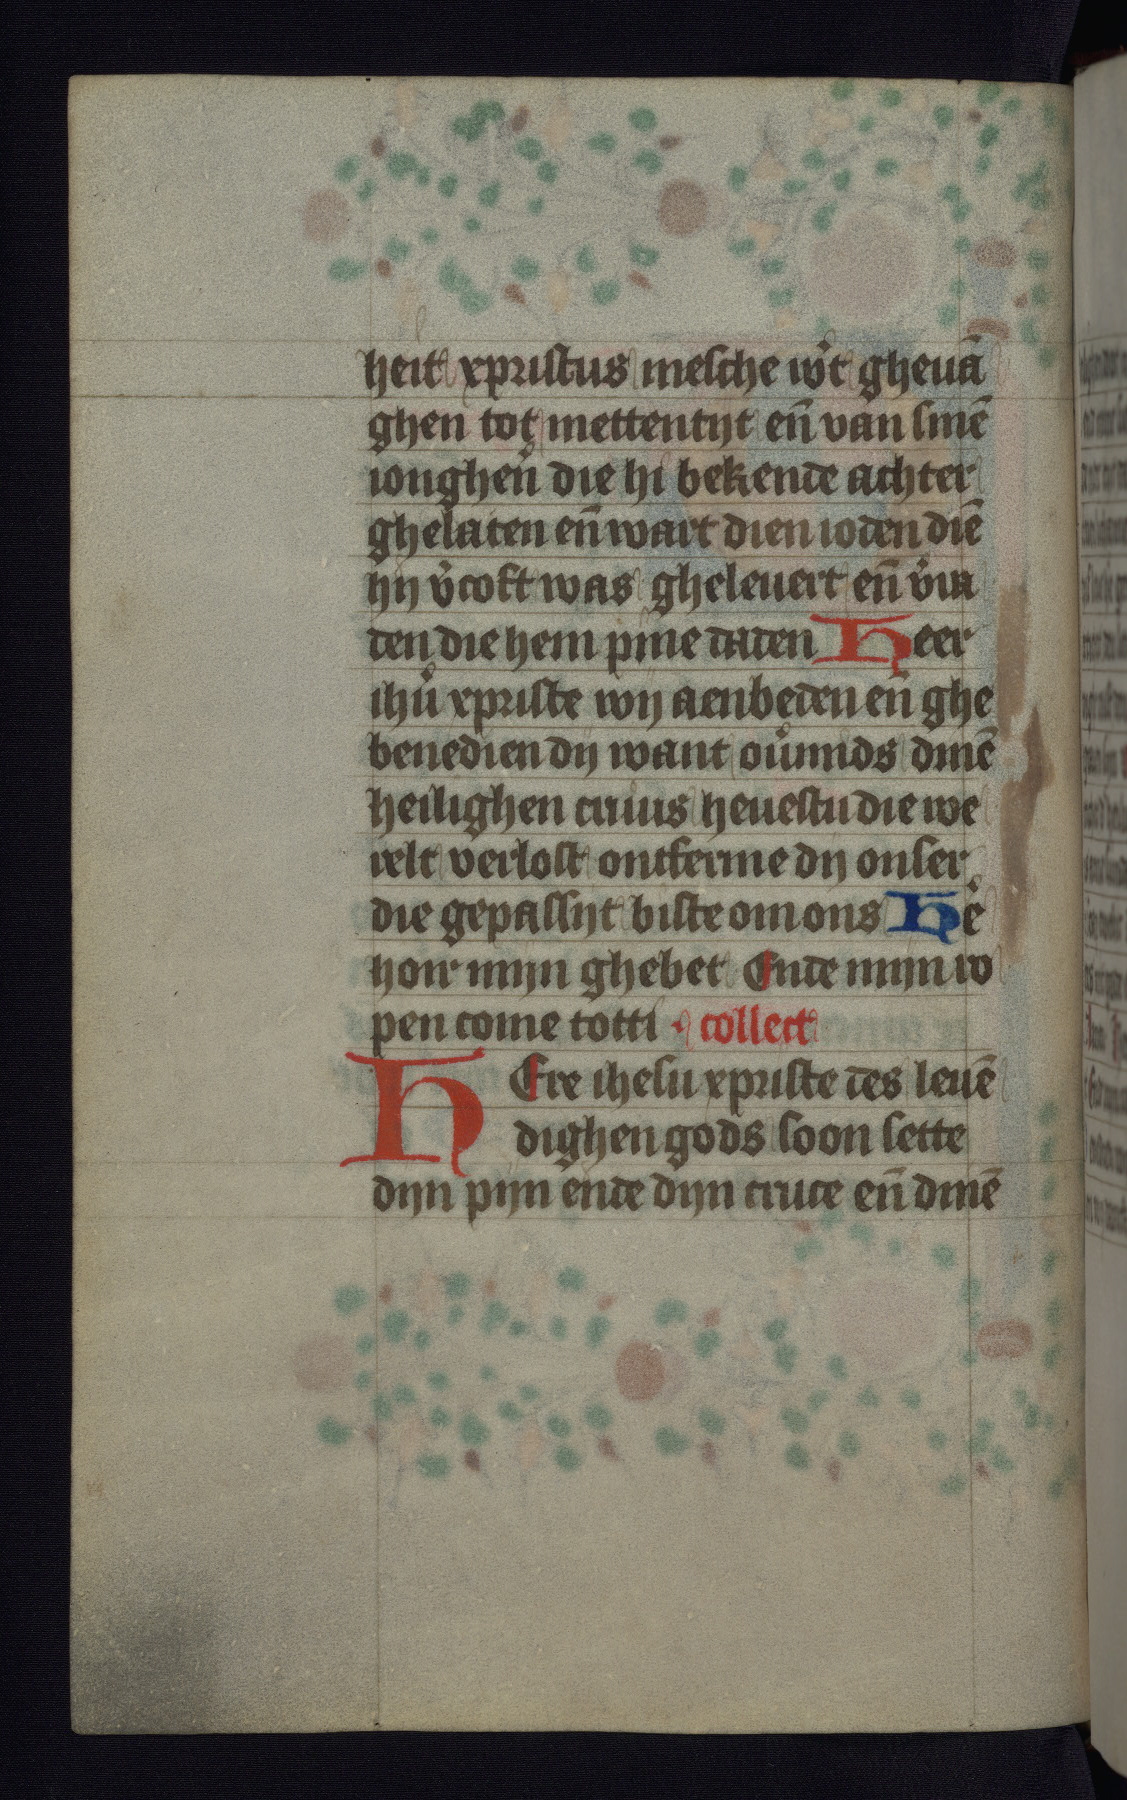 heit xpristus mesche wͦt gheuā
ghen tot mettentijt en̄ van sinē
ionghen die hi bekende achter
ghelaten en̄ wart dien ioden diē
hij v̓coft was gheleuert en̄ v̓ra
den die hem pine daden Heer
ihū xpriste wij aenbeden en̄ ghe
benedien dij want ou̓mids dinē
heilighen cruus heuestu die we
relt verlost ontferme dij onser
die gepassijt biste om ons He̓
hoir mijn ghebet Ende mijn ro
pen come totti collect
HEre ihesu xpriste des leuē
dighen gods soon sette
dijn pijn ende dijn cruce en̄ dinē